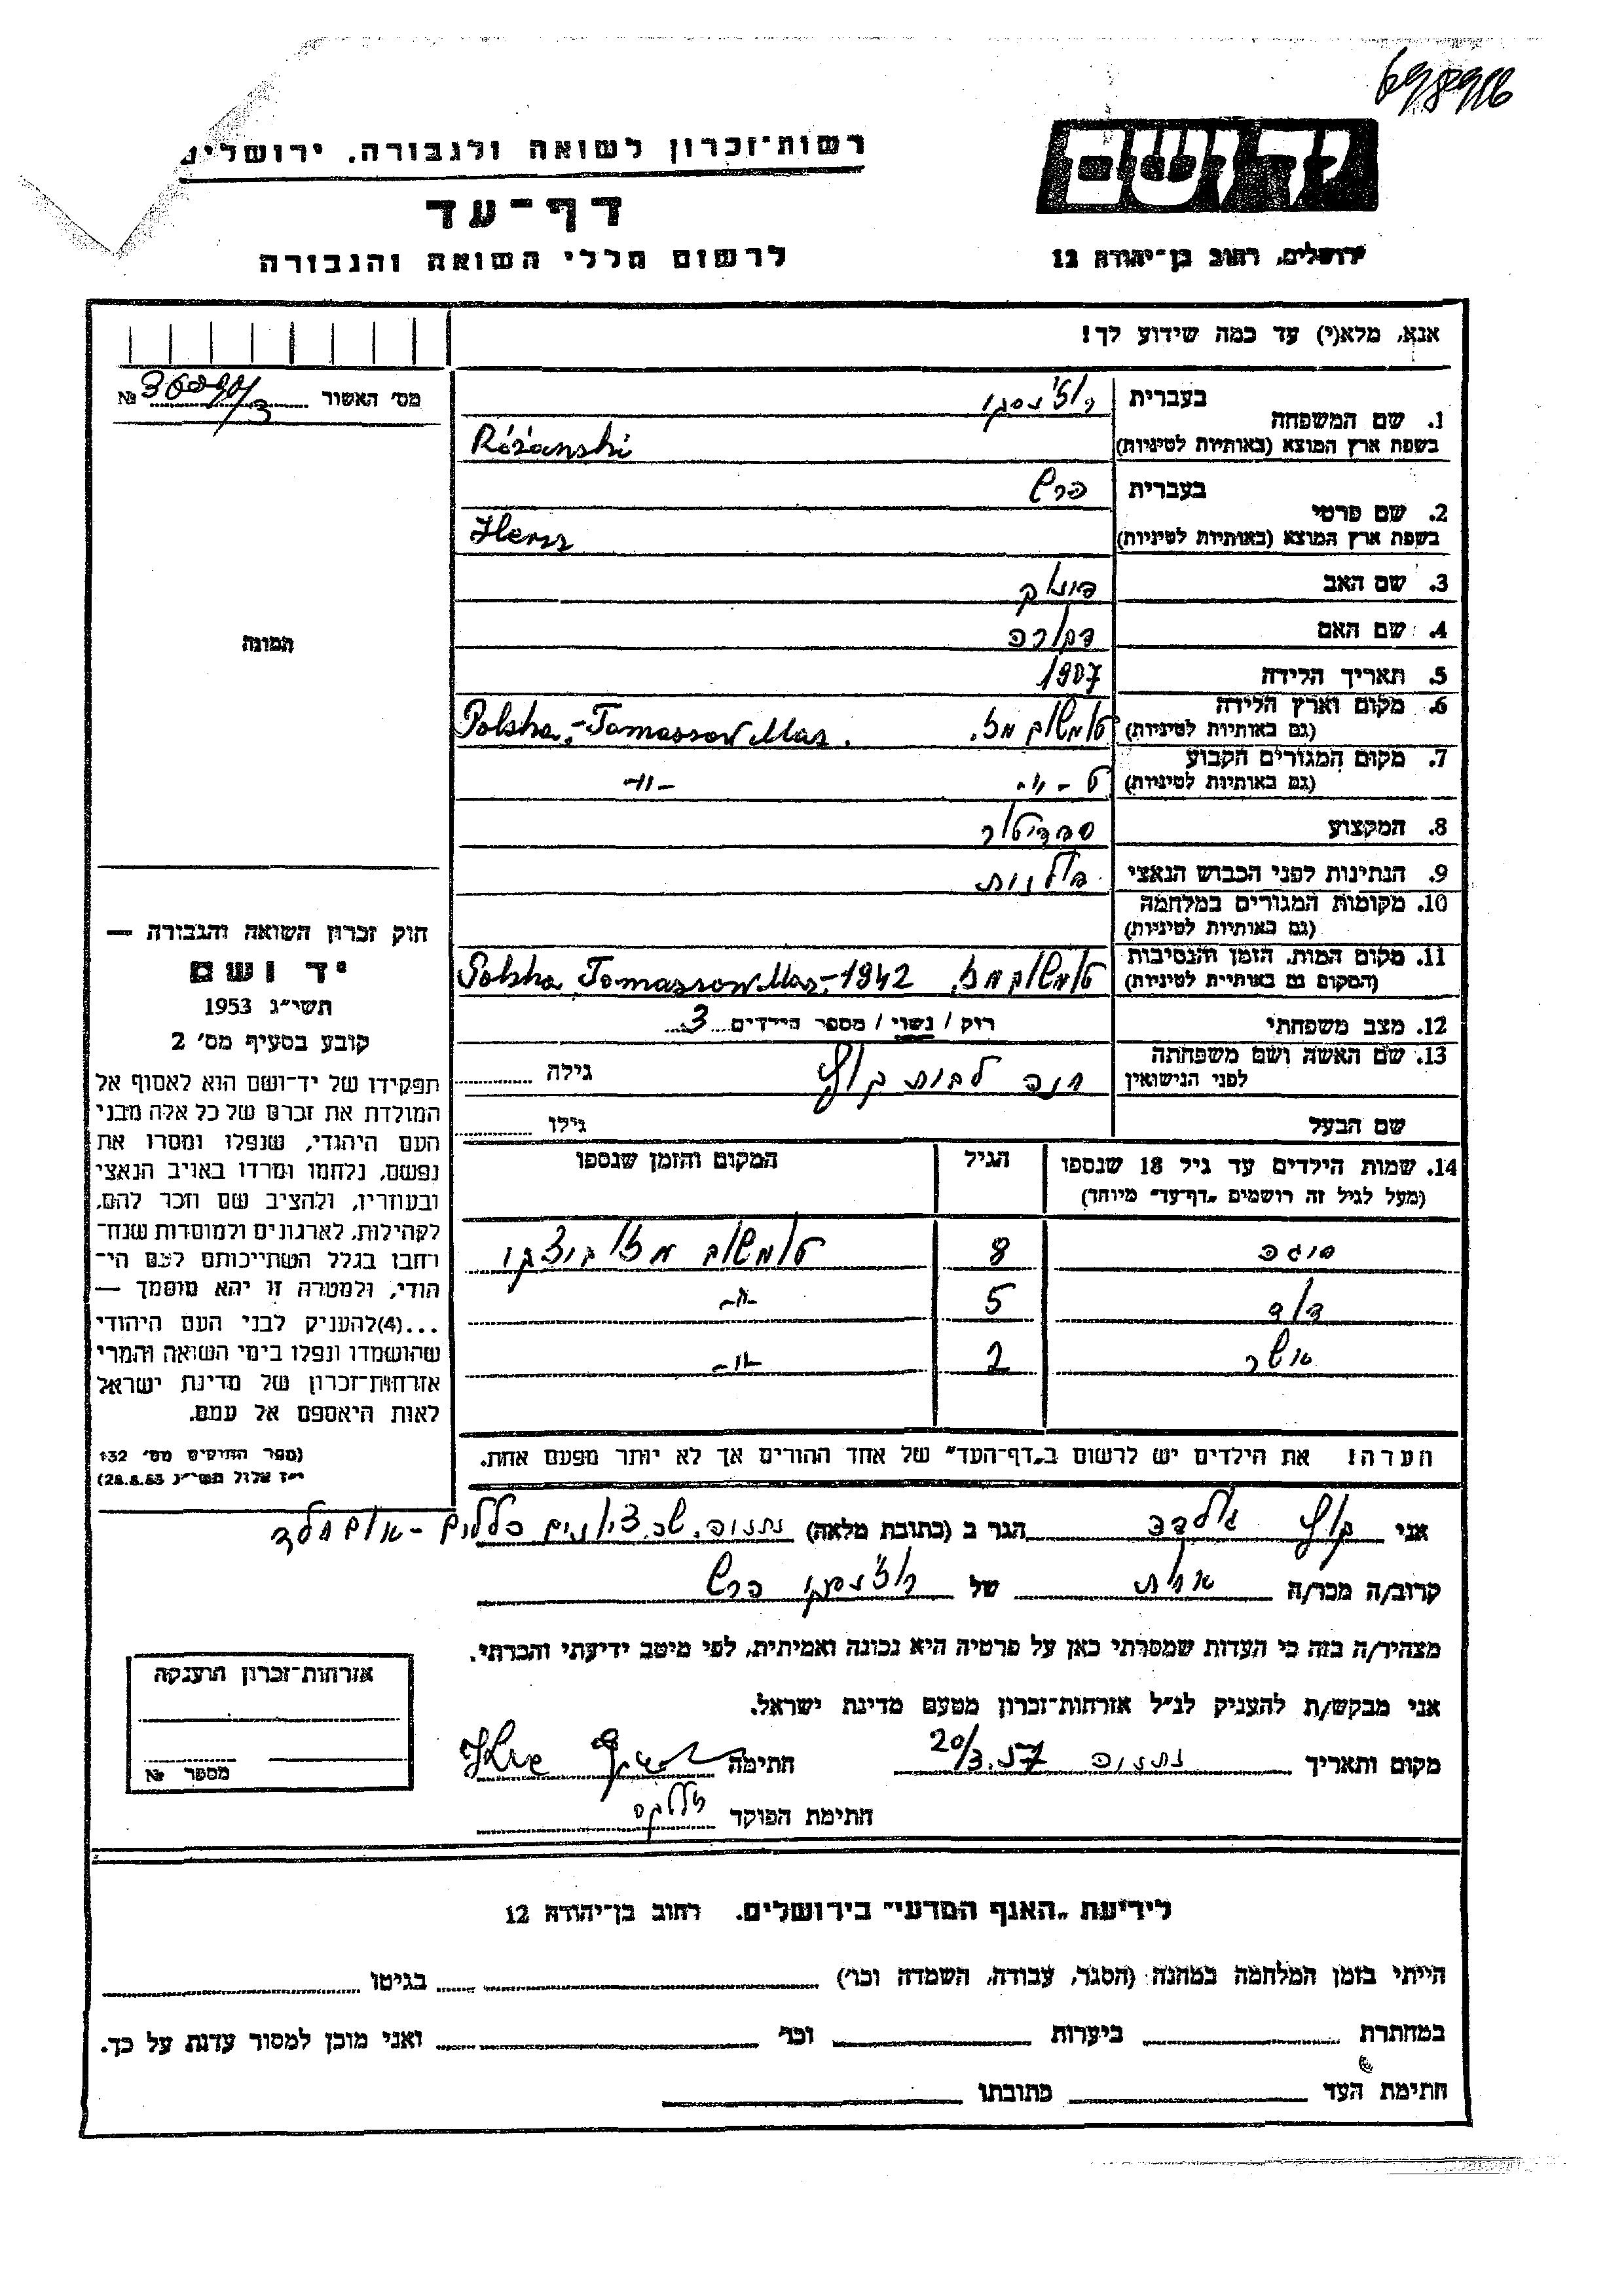 698916
רשות־זכרון לשואה ולגבורה, ירושלים
דף־עד
לרשום חללי השואה והגבורה
יד ושם
ירושלים, רחוב בן־יהודה 12
אנא, מלא(י) עד כמה שידוע לך!
מס' האשור №
1. שם המשפחה בעברית רוז'נסקי
בשפת ארץ המוצא (באותיות לטיניות) Różanski
2. שם פרטי בעברית הרש
בשפת ארץ המוצא (באותיות לטיניות) Hersz
3. שם האב
4. שם האם דבורה
5. תאריך הלידה 1907
6. מקום וארץ הלידה (גם באותיות לטיניות) טומשוב מז. Polska, - Tomassow Mas.
7. מקום המגורים הקבוע (גם באותיות לטיניות) -"- -"-
8. המקצוע
9. הנתינות לפני הכבוש הנאצי פולנית
10. מקומות המגורים במלחמה (גם באותיות לטיניות)
11. מקום המות, הזמן והנסיבות (המקום גם באותיות לטיניות) טומשוב מז. Polska Tomassow Mas. - 1942
12. מצב משפחתי רוק / נשוי / מספר הילדים 3
13. שם האשה ושם משפחתה לפני הנישואין חנה לבית קוץ גילה
שם הבעל גילו
14. שמות הילדים עד גיל 18 שנספו (מעל לגיל זה רושמים „דף־עד" מיוחד) הגיל המקום והזמן שנספו
8 טומשוב מזוביצקי
דוד 5 -"-
אשר 2 -"-
הערה! את הילדים יש לרשום ב„דף־העד" של אחד ההורים אך לא יותר מפעם אחת.
תמונה
חוק זכרון השואה והגבורה —
יד ושם
תשי"ג 1953
קובע בסעיף מס' 2
תפקידו של יד־ושם הוא לאסוף אל
המולדת את זכרם של כל אלה מבני
העם היהודי, שנפלו ומסרו את
נפשם, נלחמו ומרדו באויב הנאצי
ובעוזריו, ולהציב שם וזכר להם,
לקהילות, לארגונים ולמוסדות שנח־
רחבו בגלל השתייכותם לעם הי־
הודי, ולמטרה זו יהא מוסמך —
...(4) להעניק לבני העם היהודי
שהושמדו ונפלו בימי השואה והמרי
אזרחות־זכרון של מדינת ישראל
לאות היאספם אל עמם.
(ספר החוקים מס' 132
י"ז אלול תשי"ג 28.8.53)
אני קוץ גולדה הגר ב (כתובת מלאה) נתניה, שכ. ציונים כלליים -
קרוב/ה מכר/ה אחות של רוז'נסקי הרש
מצהיר/ה בזה כי העדות שמסרתי כאן על פרטיה היא נכונה ואמיתית, לפי מיטב ידיעתי והכרתי.
אני מבקש/ת להעניק לנ"ל אזרחות־זכרון מטעם מדינת ישראל.
מקום ותאריך נתניה 20/3.57 חתימה
חתימת הפוקד
אזרחות־זכרון הוענקה
מספר №
לידיעת „האגף המדעי" בירושלים. רחוב בן־יהודה 12
הייתי בזמן המלחמה במחנה (הסגר, עבודה, השמדה וכו') בגיטו
במחתרת ביערות וכו' ואני מוכן למסור עדות על כך.
חתימת העד כתובתו